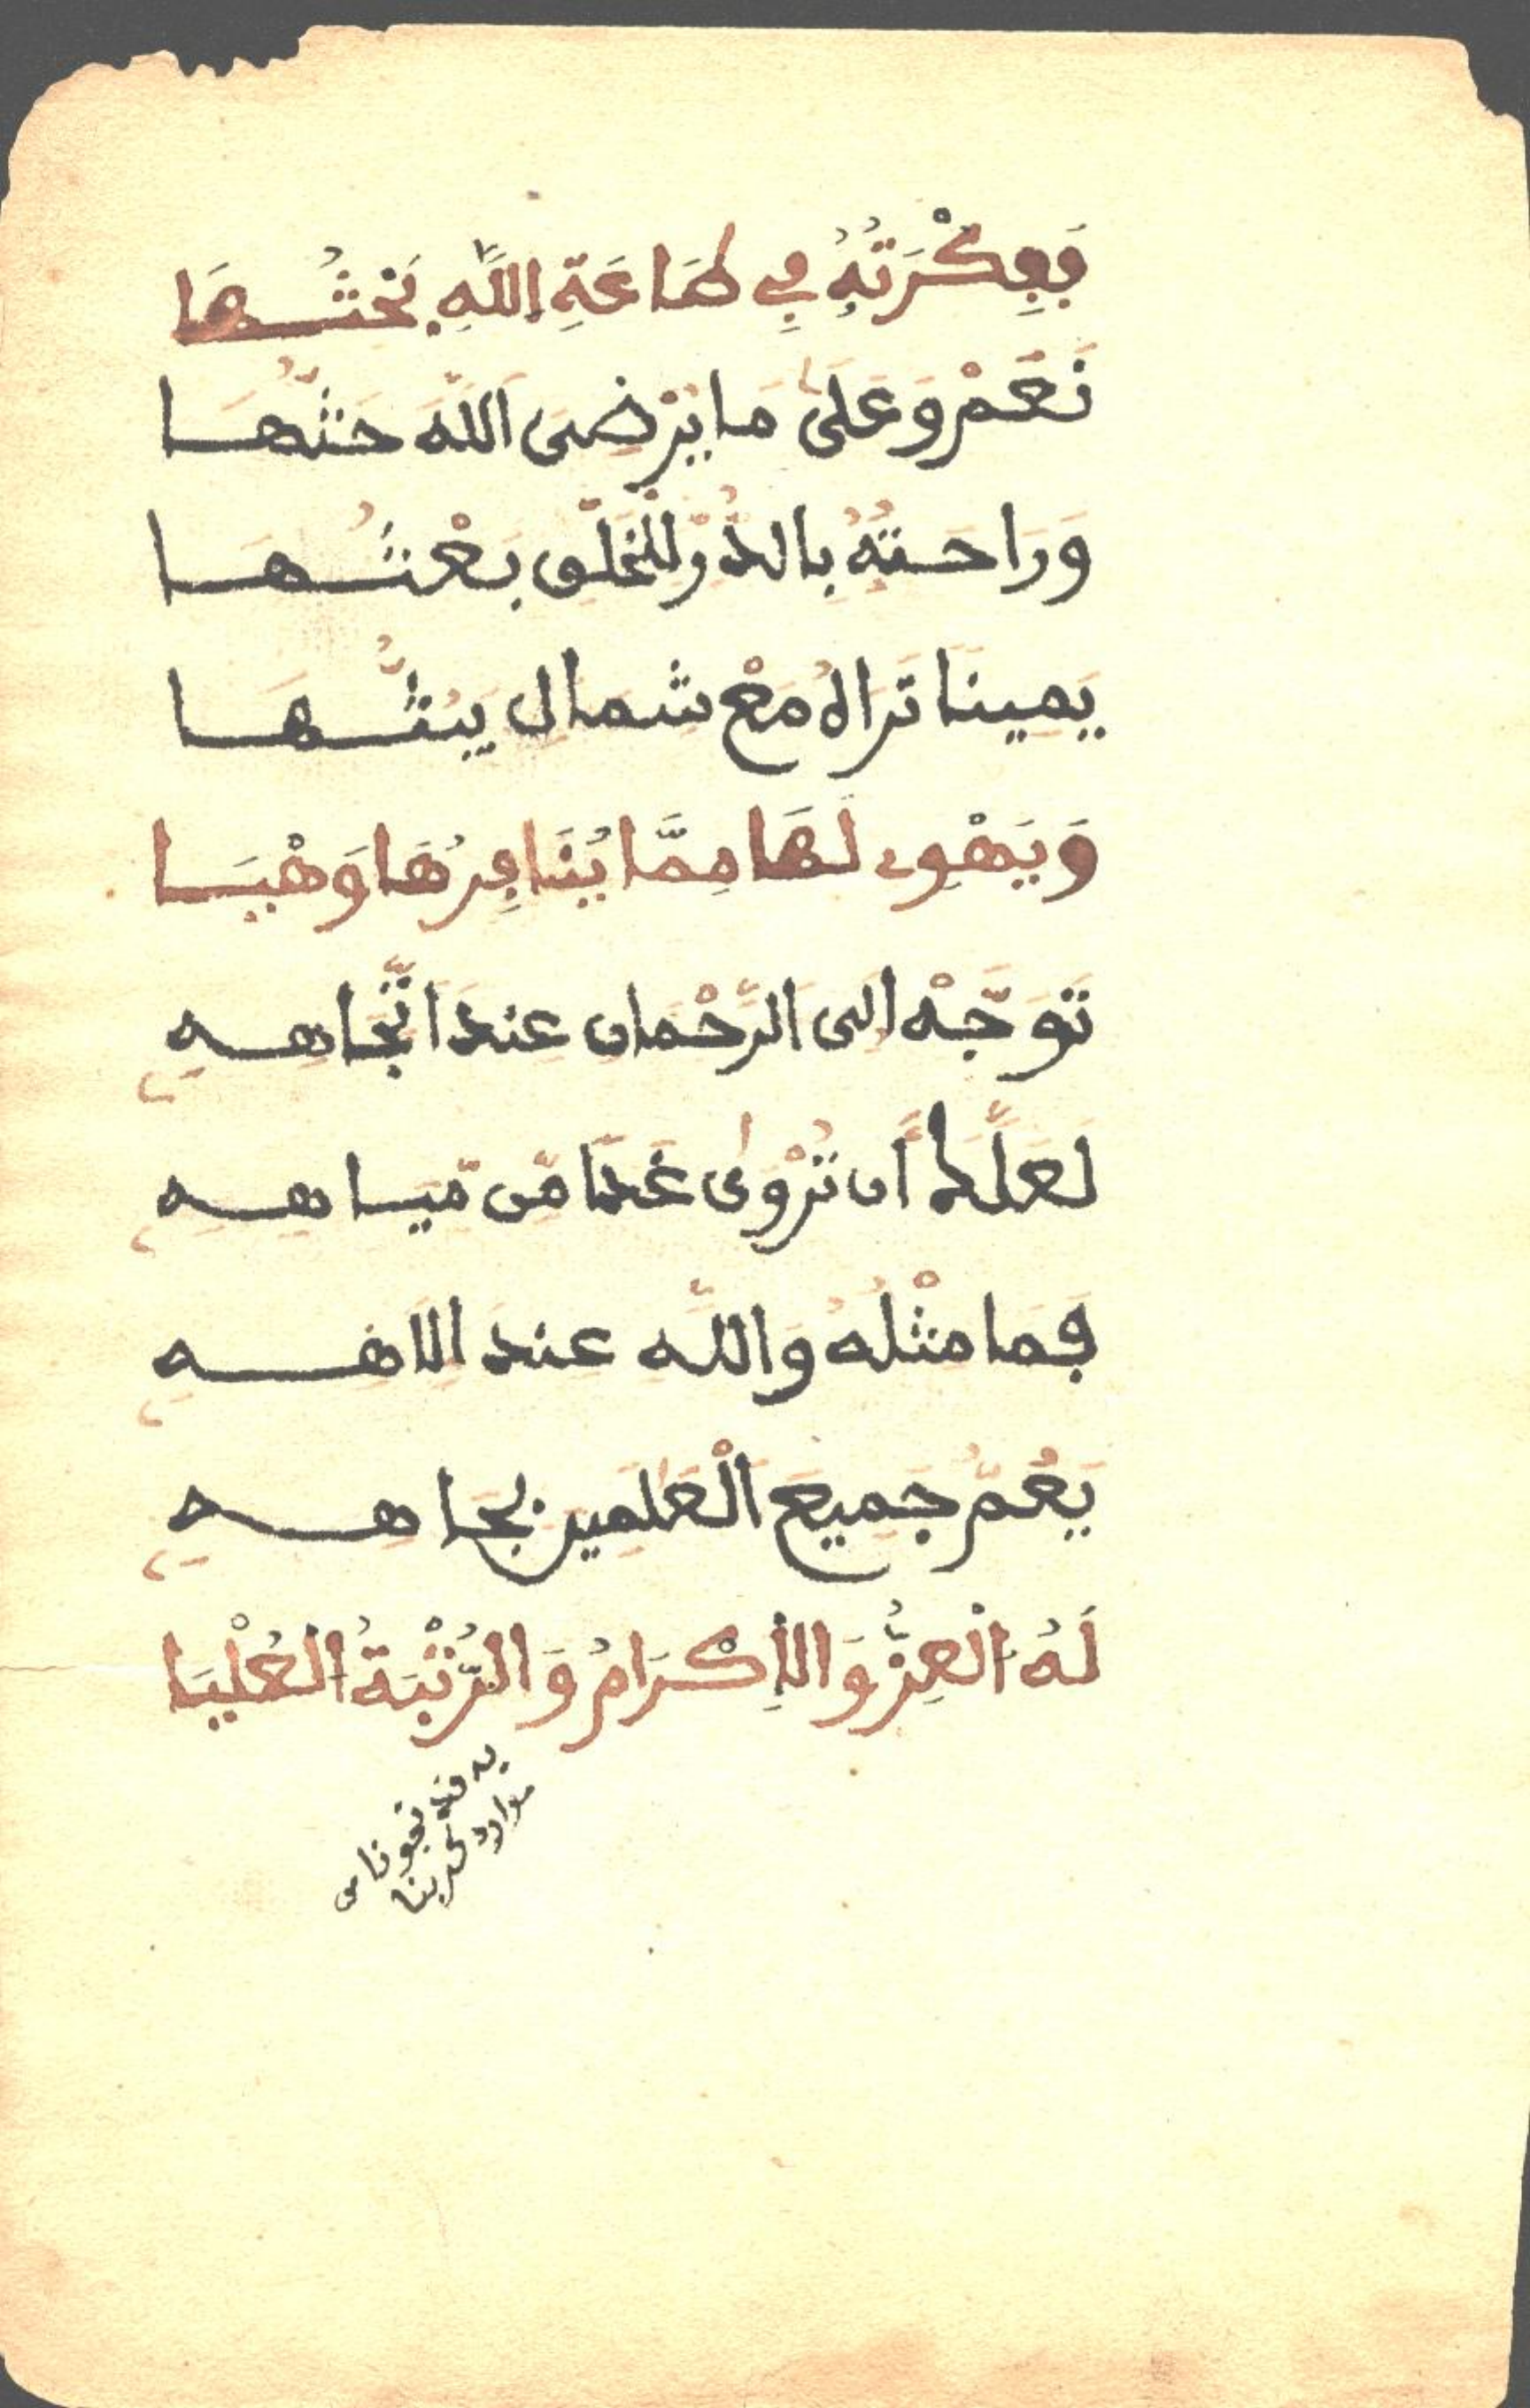 فَفِكْرَتُهُ فِي طَاعَةِ اللَّهِ بَحْثُهَا
نَعَمْ وَعَلَىٰ مَا يُرْضِى اللَّهَ حَثُّهَا
وَرَاحَتُهُ بِالدُّرِّ لِلْخَلْقِ بَعْثُهَا
يَمِينًا تَرَاهُ مَعْ شِمَالٍ يَبُثُّهَا
وَيَهْوِى لَهَا مِمَّا يُنَافِرُهَا وَهْيَا
تَوَجَّهْ إِلَى الرَّحْمَانِ عِندَ اتِّجَاهِهِ
لَعَلَّكَ أَن تُرْوَىٰ غَدًا مِّن مِّيَاهِهِ
فَمَا مِثْلُهُ وَاللَّهِ عِندَ إِلَاهِهِ
يَعُمُّ جَمِيعَ الْعَٰلَمِينَ بِجَاهِهِ
لَهُ الْعِزُّ وَالْإِكْرَامُ وَالرُّتْبَةُ الْعُلْيَا